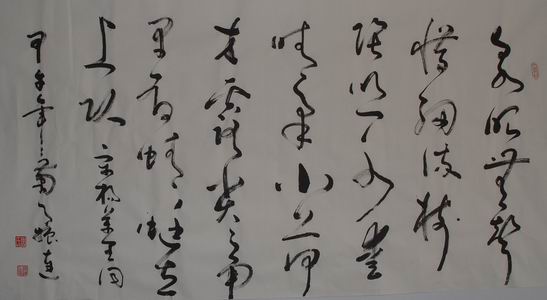 泉眼無聲
惜細流樹
陰照水愛
晴柔小荷
才露尖尖角
早有蜻蜓立
上頭 宋楊萬里
甲午年